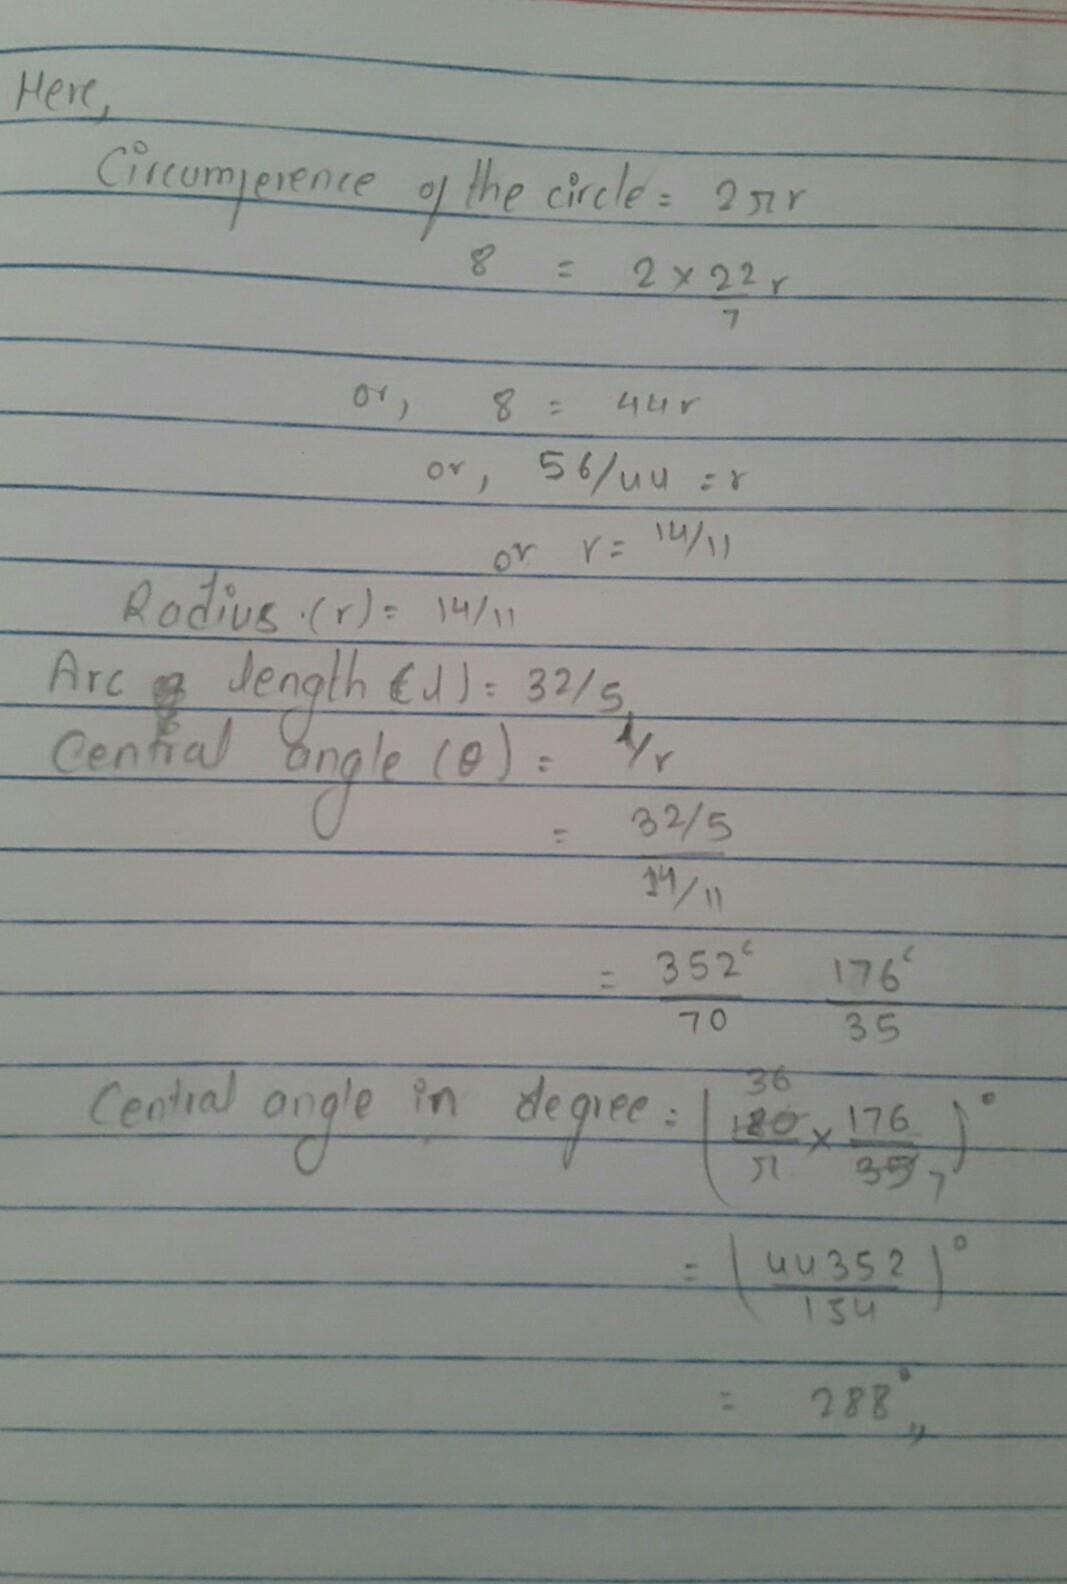 Here,
Circumference of the circle = 2πr
8 = 2 × 22/7 r
or, 8 = 44r
or, 56/44 = r
or r = 14/11
Radius (r) = 14/11
Arc length (l) = 32/5
Central angle (θ) = l/r
= 32/5 / 14/11
= 352ᶜ/70 176ᶜ/35
Central angle in degree = (180/π 36 × 176/35 7)°
= (44352/154)°
= 288°,,